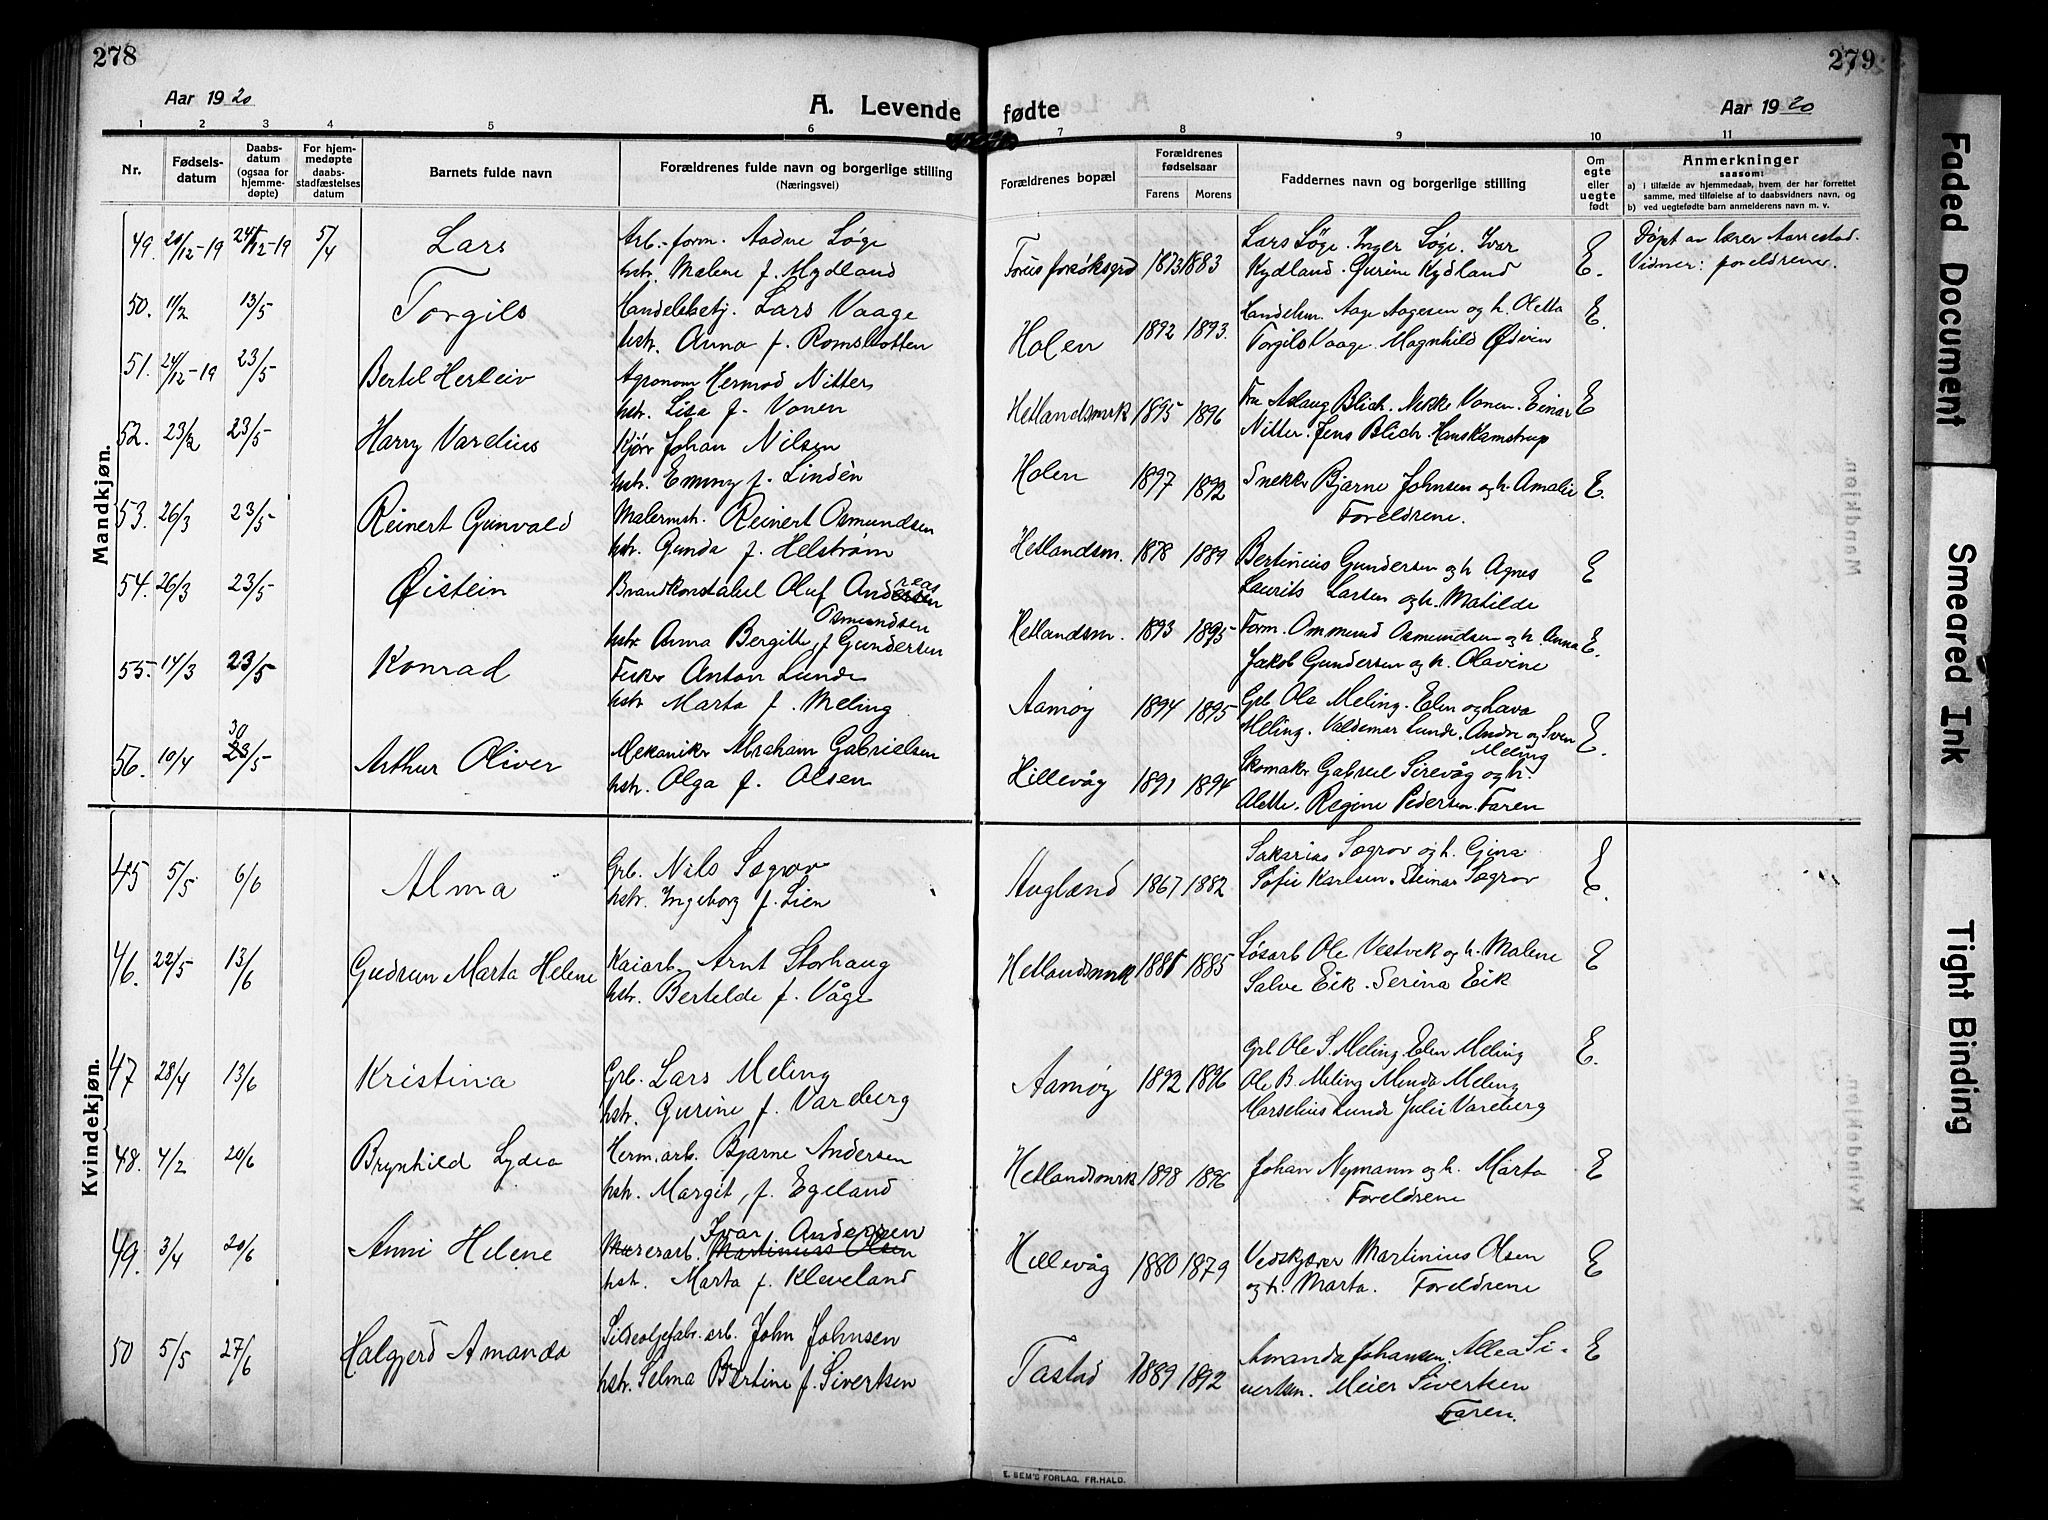 278
Aar 1920
A. Levende
1 2 3 4 5 6
Nr.
Fødsels-
datum
Daabs-
datum
(ogsaa for
hjemme-
døpte)
For hjem-
medøpte
daabs-
stadfæstelses
datum
Barnets fulde navn
Forældrenes fulde navn og borgerlige stilling
(Næringsvei)
Mandkjøn.
49. 20/12-19 24/12-19 5/4 Lars Arb.-form. Aadne Søge
hstr. Malene f. Mydland
50. 11/2 13/5 Torgils Handelsbetj. Lars Vaage
hstr. Anna f. Romslotten
51. 24/12-19 23/5 Bertel Herleiv Agronom Hermod Nitter
hstr. Lisa f. Vonen
52. 23/2 23/5 Harry Vardius Kjør. Johan Nilsen
hstr. Emmy f. Lindèn
53. 26/3 23/5 Reinert Gunvald Malermstr. Reinert Osmundsen
hstr. Gunda f. Helstrøm
54. 26/3 23/5 Øistein Brandkonstabel Oluf Andreas
Osmundsen
hstr. Anna Bergitte f. Gundersen
55. 14/3 23/5 Konrad Fisker Anton Lunde
hstr. Marta f. Meling
56. 10/4 30/5 Arthur Oliver Mekaniker Abraham Gabrielsen
hstr. Olga f. Olsen
Kvindekjøn.
45 5/5 6/6 Alma Grb. Nils Sægrov
hstr. Ingeborg f. Lien
46. 22/5 13/6 Gudrun Marta Helene Kaiarb. Arnt Storhaug
hstr. Bertilde f. Våge
47 28/4 13/6 Kristina Grb. Lars Meling
hstr. Gurine f. Vareberg
48. 4/2 20/6 Brynhild Lydia Herm.arb. Bjarne Andersen
hstr. Margit, f. Egeland
49. 3/4 20/6 Anni Helene Ivar Andersen
Murerarb. Martinius Olsen
hstr. Marta f. Kleveland
50 5/5 27/6 Halgjerd Amanda Sildoljefabr. arb. John Johnsen
hstr. Selma Bertine f. Sivertsen
279
fødte
Aar 1920
7 8 9 10 11
Forældrenes bopæl
Forældrenes
fødselsaar
Farens Morens
Faddernes navn og borgerlige stilling
Om
egte
eller
uegte
født
Anmerkninger
saasom:
a) i tilfælde av hjemmedaab, hvem der har forrettet
samme, med tilføielse av to daabsvidners navn, og
b) ved uegtefødte barn anmelderens navn m. v.
Forus forsøksgrd 1873 1883 Lars Søge. Inger Søge. Ivar
Kydland. Gurine Kydland E.
Døpt av lærer Aarrestad.
Vidner: foreldrene.
Holen 1892 1893. Handelsm. Aage Aagesen og h. Oletta
Torgils Vaage. Magnhild Ødvin E.
Hetlandsmrk 1895 1896 Fru Aslaug Blich. Nikke Vonen. Einar
Nitter. Jens Blich. Hans Kamstrup E
Holen 1897 1892 Snekker Bjarne Johnsen og h. Amalie
Foreldrene. E.
Hetlandsm. 1878 1889 Bertinius Gundersen og h. Agnes
Laurits Larsen og h. Matilde E
Hetlandsm. 1893 1895 Form. Ommund Osmundsen og h. Anna
Jakob Gundersen og h. Olavine E.
Aamøy 1894 1895 Grb. Ole Meling. Elen og Lava
Meling. Valdemar Lunde. Andre og Sven
Meling E.
Hillevåg 1891 1894 Skomaker Gabriel Sirevåg og h.
Alette. Regine Pedersen. Faren
Augland 1867 1882 Sakarias Sægrov og h. Gina
Sofie Karlsen. Steinar Sægrov E.
Hetlandsmrk 1881 1885 Løsarb Ole Vestvik og h. Malene
Salve Eik. Serina Eik E
Aamøy 1892 1896 Grb Ole S. Meling. Elen Meling
Ole B. Meling Minda Meling
Marselius Lunde Julie Vareberg E.
Hetlandsmrk 1898 1896 Johan Nymann og h. Marta
Foreldrene E
Hillevåg 1880 1879 Vedskjærer Martinius Olsen
og h. Marta. Foreldrene E
Tastad 1889 1892 Amanda Johansen. Allea Si-
vertsen. Meier Sivertsen
Faren. E
E. SEM'S FORLAG, FR.HALD.
Faded Document
Smeared Ink
Tight Binding